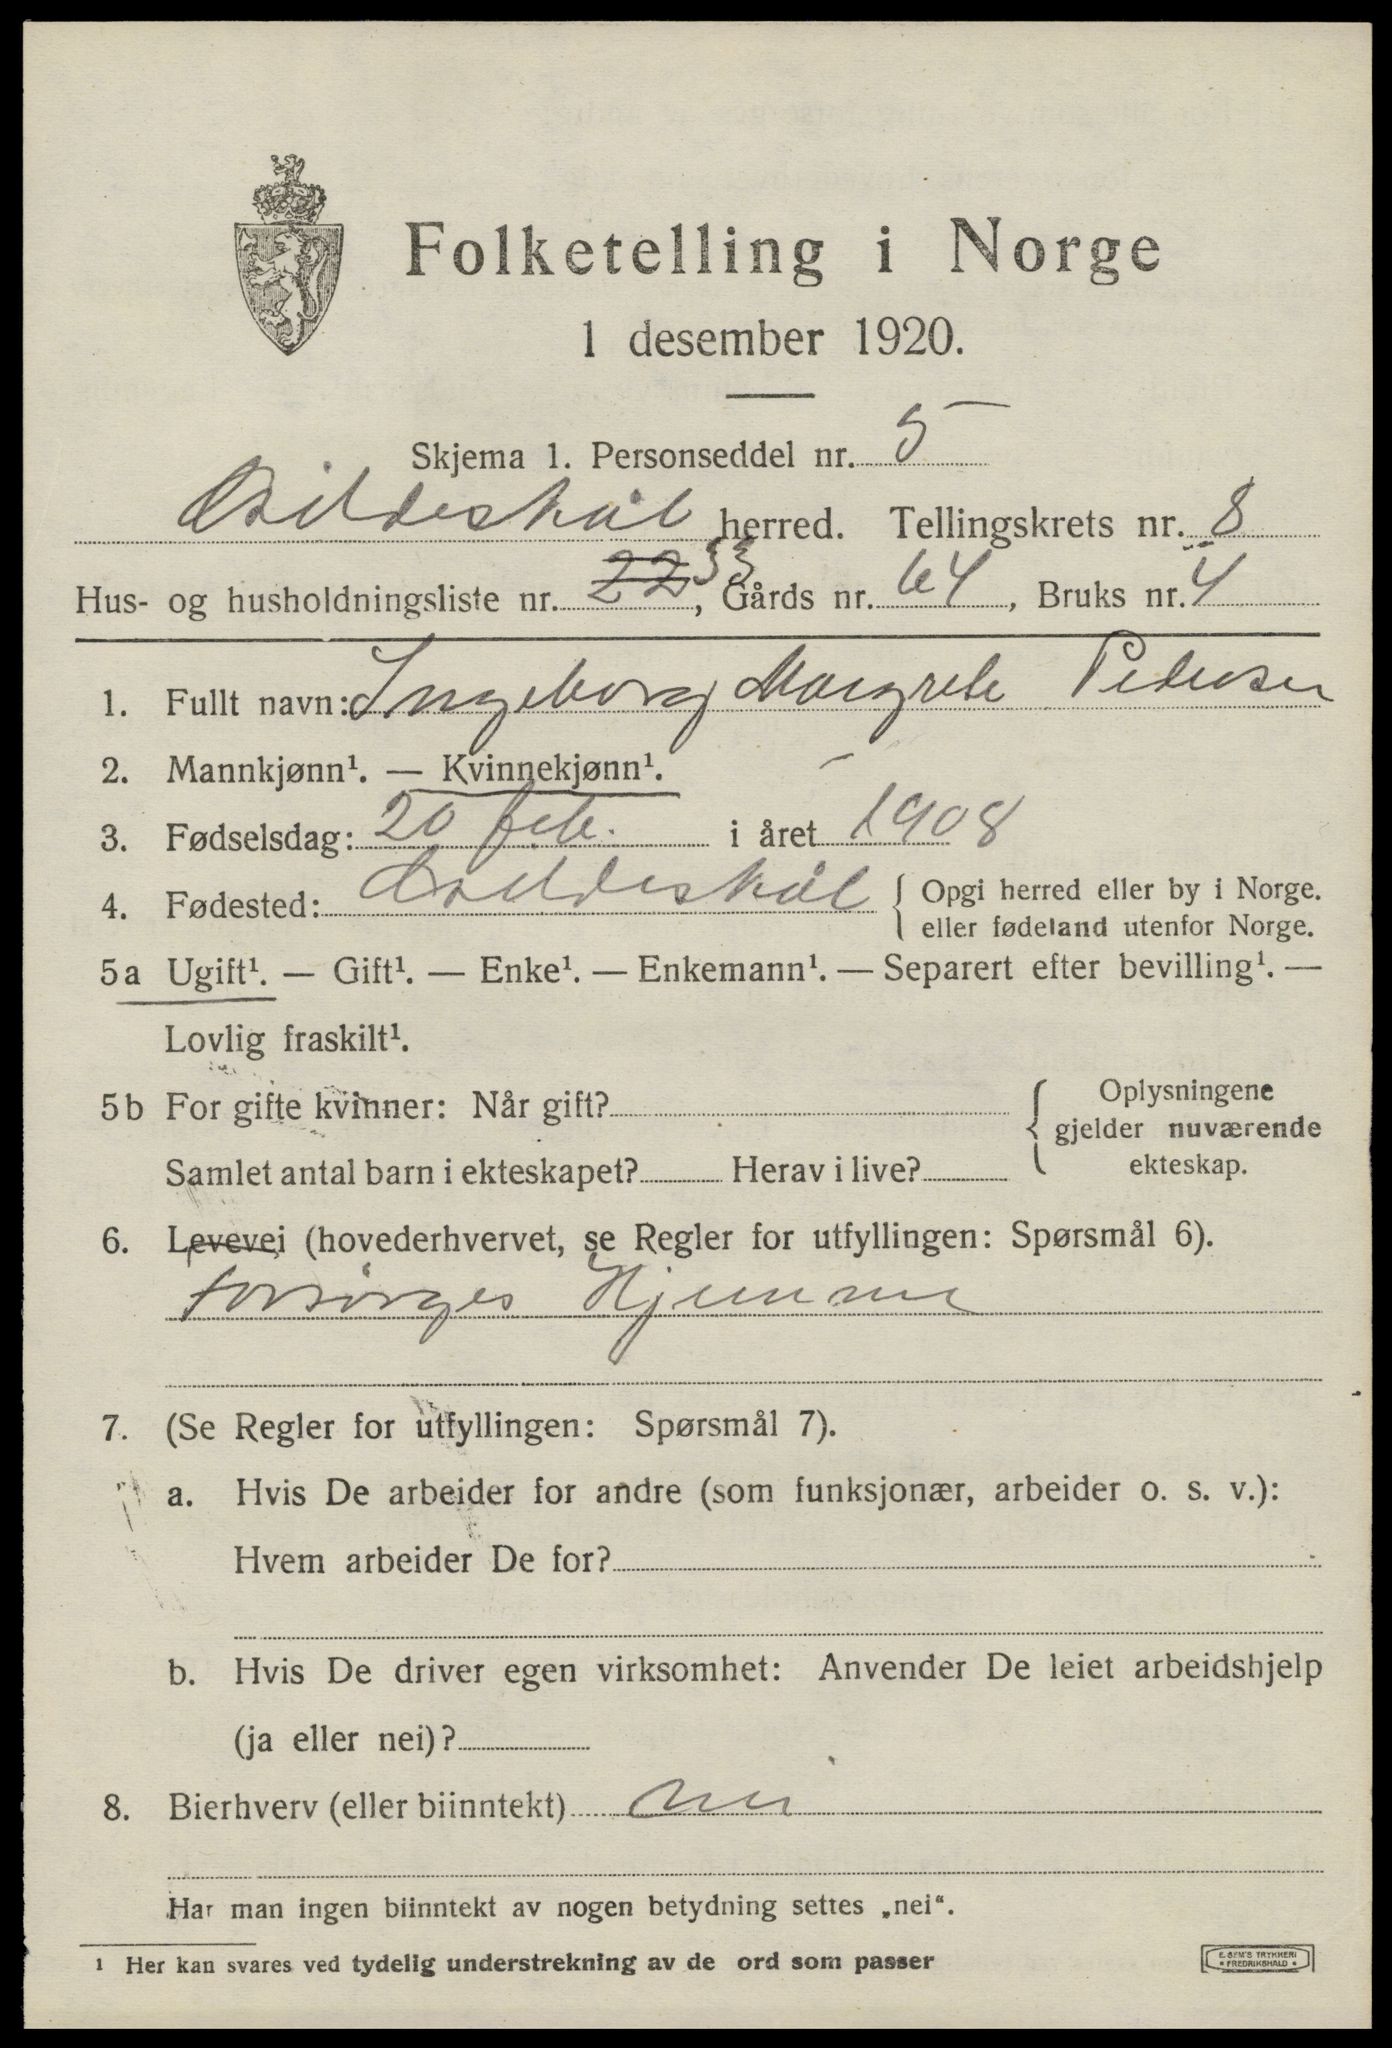 Folketelling i Norge
1 desember 1920.
Skjema 1. Personseddel nr. 5
Gildeskål herred. Tellingskrets nr. 8
Hus- og husholdningsliste nr. 22 33, Gårds nr. 64, Bruks nr. 4
1. Fullt navn: Ingeborg Margrete Pedersen
2. Mannkjønn¹. — Kvinnekjønn¹.
3. Fødselsdag: 20 feb. i året 1908
4. Fødested: Gildeskål { Opgi herred eller by i Norge.
eller fødeland utenfor Norge.
5a Ugift¹. — Gift¹. — Enke¹. — Enkemann¹. — Separert efter bevilling¹. —
Lovlig fraskilt¹.
5b For gifte kvinner: Når gift? { Oplysningene
gjelder nuværende
Samlet antal barn i ekteskapet? Herav i live? ekteskap.
6. Levevei (hovederhvervet, se Regler for utfyllingen: Spørsmål 6).
Forsørges Hjemme
7. (Se Regler for utfyllingen: Spørsmål 7).
a. Hvis De arbeider for andre (som funksjonær, arbeider o. s. v.):
Hvem arbeider De for?
b. Hvis De driver egen virksomhet: Anvender De leiet arbeidshjelp
(ja eller nei)?
8. Bierhverv (eller biinntekt) nei
Har man ingen biinntekt av nogen betydning settes „nei“.
¹ Her kan svares ved tydelig understrekning av de ord som passer
E. SEM'S TRYKKERI
• FREDRIKSHALD •